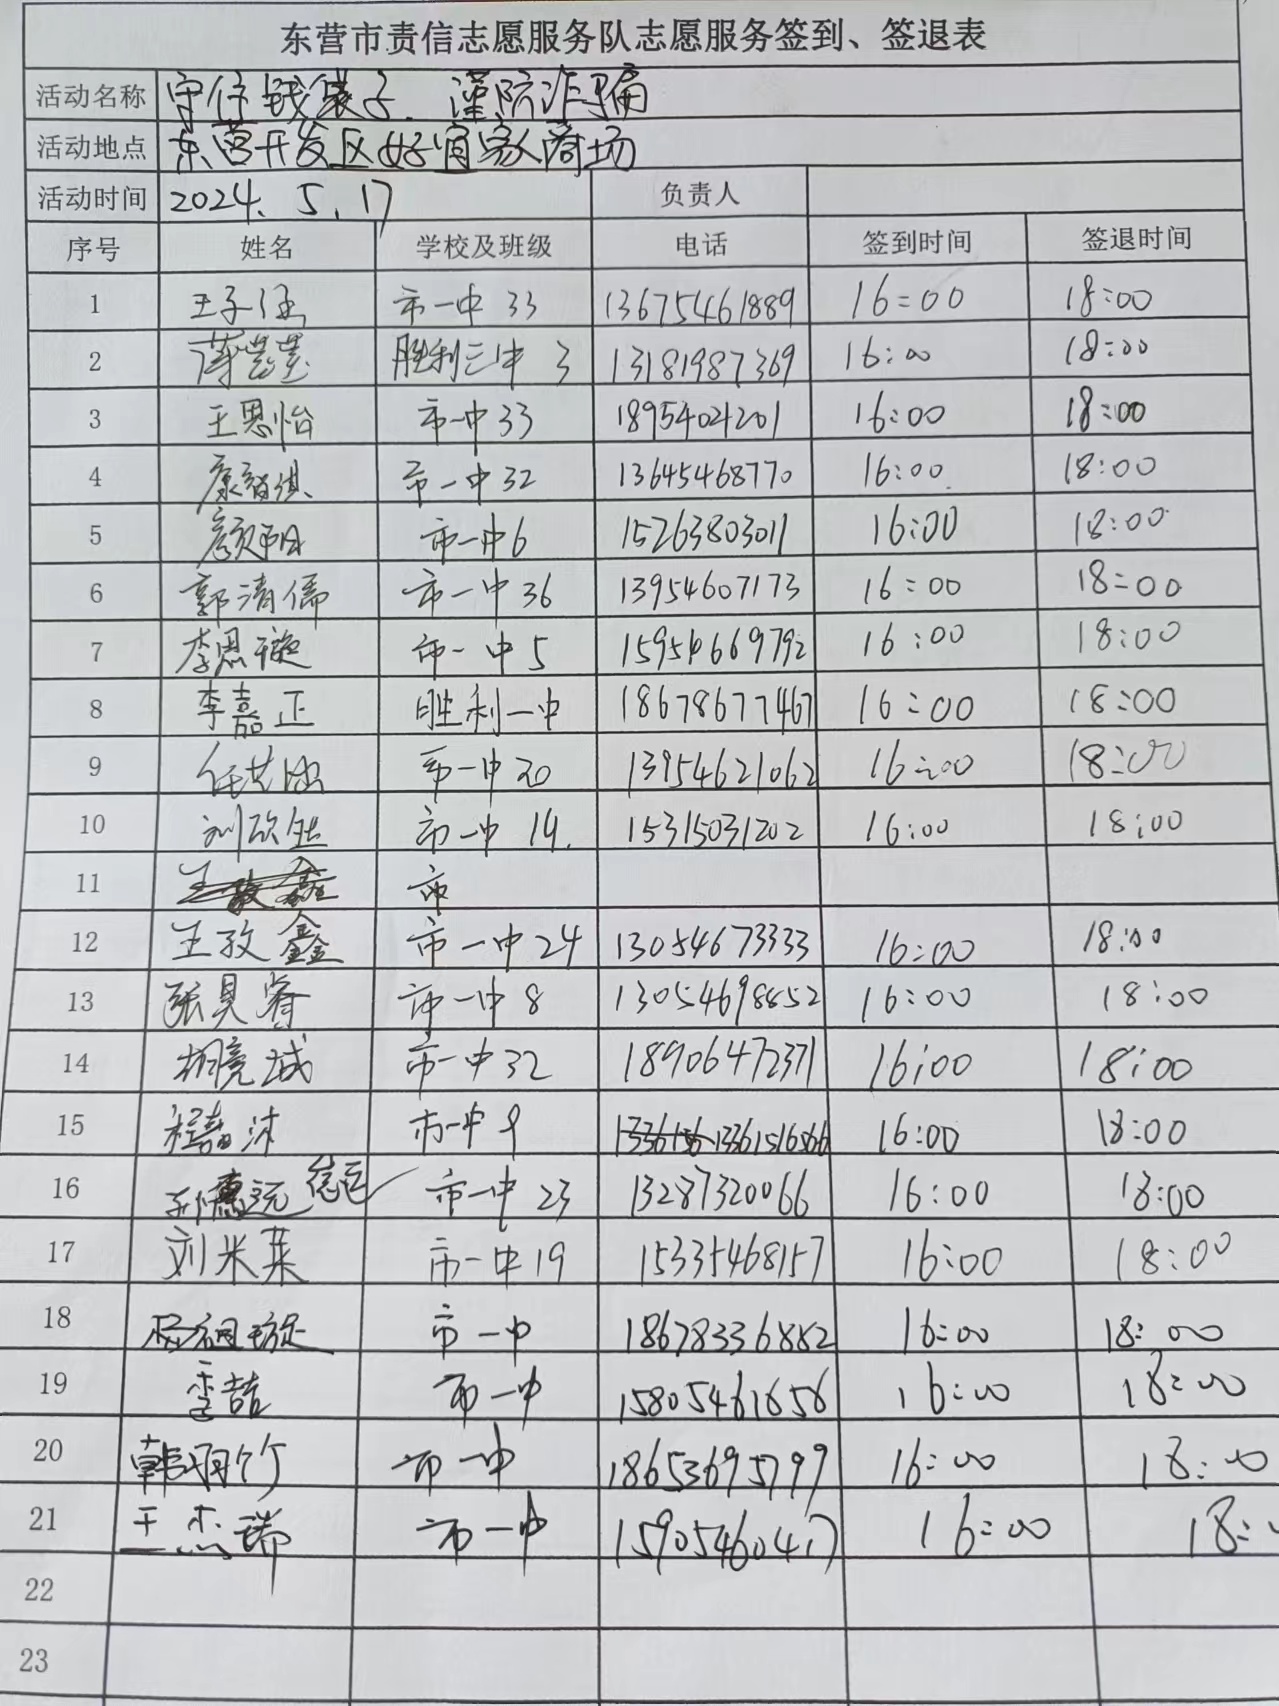 东营市责信志愿服务队志愿服务签到、签退表
活动名称 守住钱袋子.谨防诈骗
活动地点 东营开发区好宜家人商场
活动时间 2024.5.17 负责人
序号 姓名 学校及班级 电话 签到时间 签退时间
1 王子涵 市一中33 13675461889 16:00 18:00
2 胜利三中 3 13181987369 16:00 18:00
3 王思怡 市一中33 1895404201 16:00 18:00
4 市一中32 13645468770 16:00 18:00
5 市一中6 15263803011 16:00 18:00
6 郭清儒 市一中36 13954607173 16:00 18:00
7 李思璇 市一中5 15954669792 16:00 18:00
8 李嘉正 胜利一中 18678677467 16:00 18:00
9 市一中20 13954621062 16:00 18:00
10 市一中 14. 15315031202 16:00 18:00
11 市
12 王孜鑫 市一中24 13054673333 16:00 18:00
13 张昊睿 市一中8 13054698852 16:00 18:00
14 市一中32 18906472371 16:00 18:00
15 市一中9 13361516566 16:00 18:00
16 市一中 23 13287320066 16:00 18:00
17 刘米莱 市一中19 15335468157 16:00 18:00
18 市一中 18678336882 16:00 18:00
19 李喆 市一中 15805461656 16:00 18:00
20 韩羽竹 市一中 18653695799 16:00 18:00
21 王杰瑞 市一中 15905460417 16:00 18:
22
23